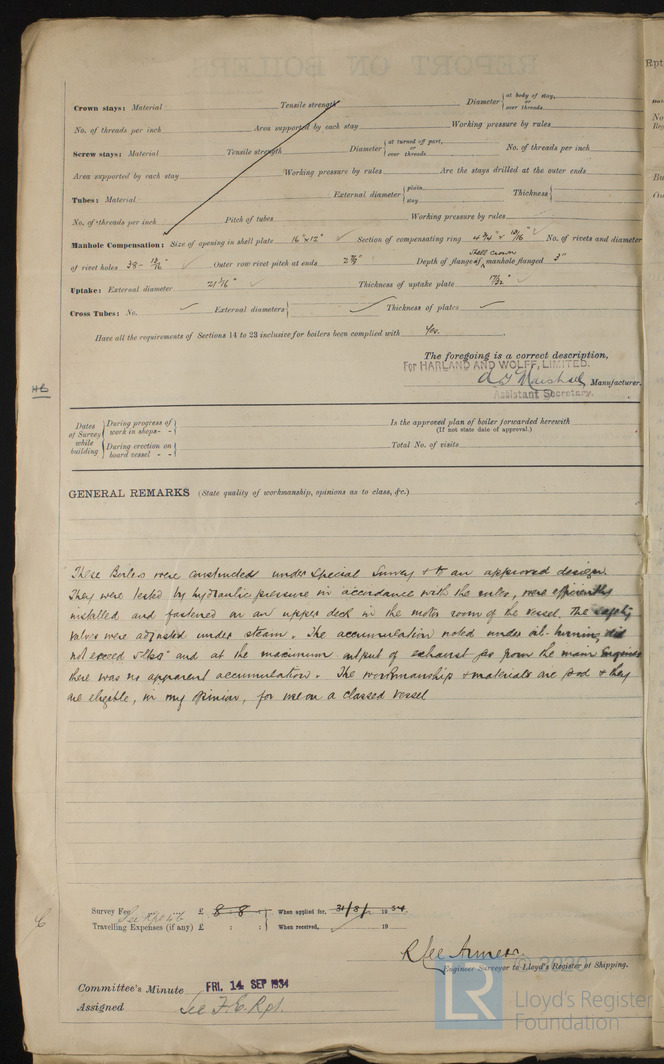 REPORT ON BOILERS.
Rpt
Crown stays: Material Tensile strength Diameter { at body of stay, or over threads.
No. of threads per inch Area supported by each stay Working pressure by rules
Screw stays: Material Tensile strength Diameter { at turned off part, or over threads No. of threads per inch
Area supported by each stay Working pressure by rules Are the stays drilled at the outer ends
Tubes: Material External diameter { plain stay Thickness {
No. of threads per inch Pitch of tubes Working pressure by rules
Manhole Compensation: Size of opening in shell plate 16" x 12" ✓ Section of compensating ring No. of rivets and diameter
of rivet holes 38 - 13/16" ✓ Outer row rivet pitch at ends Depth of flange if manhole flanged Shell Crown 3"
Uptake: External diameter ✓ Thickness of uptake plate ✓
Cross Tubes: No. ✓ External diameters { ✓ Thickness of plates ✓
Have all the requirements of Sections 14 to 23 inclusive for boilers been complied with Yes.
The foregoing is a correct description,
For HARLAND AND WOLFF, LIMITED.
A T Marshall Manufacturer.
Assistant Secretary.
Dates of Survey while building { During progress of work in shops - - { During erection on board vessel - -
Is the approved plan of boiler forwarded herewith
(If not state date of approval.)
Total No. of visits
GENERAL REMARKS (State quality of workmanship, opinions as to class, &c.)
These Boilers were constructed under Special Survey & to an approved design.
They were tested by hydraulic pressure in accordance with the rules, were efficiently
installed and fastened on an upper deck in the motor room of the vessel. The safety
valves were adjusted under steam. The accumulation noted under oil-burning did
not exceed and at the maximum output of exhaust gas from the main Engines
there was no apparent accumulation. The workmanship & materials are good & they
are eligible, in my opinion, for use on a classed vessel
Survey Fee See Rpt 4b £ 8 - 8 - : When applied for, 31/8/ 1934
Travelling Expenses (if any) £ : : When received, 19
R Lee
Engineer Surveyor to Lloyd's Register of Shipping.
© 2020
Committee's Minute FRI. 14 SEP 1934
Assigned See F.E. Rpt.
LR
Lloyd's Register
Foundation